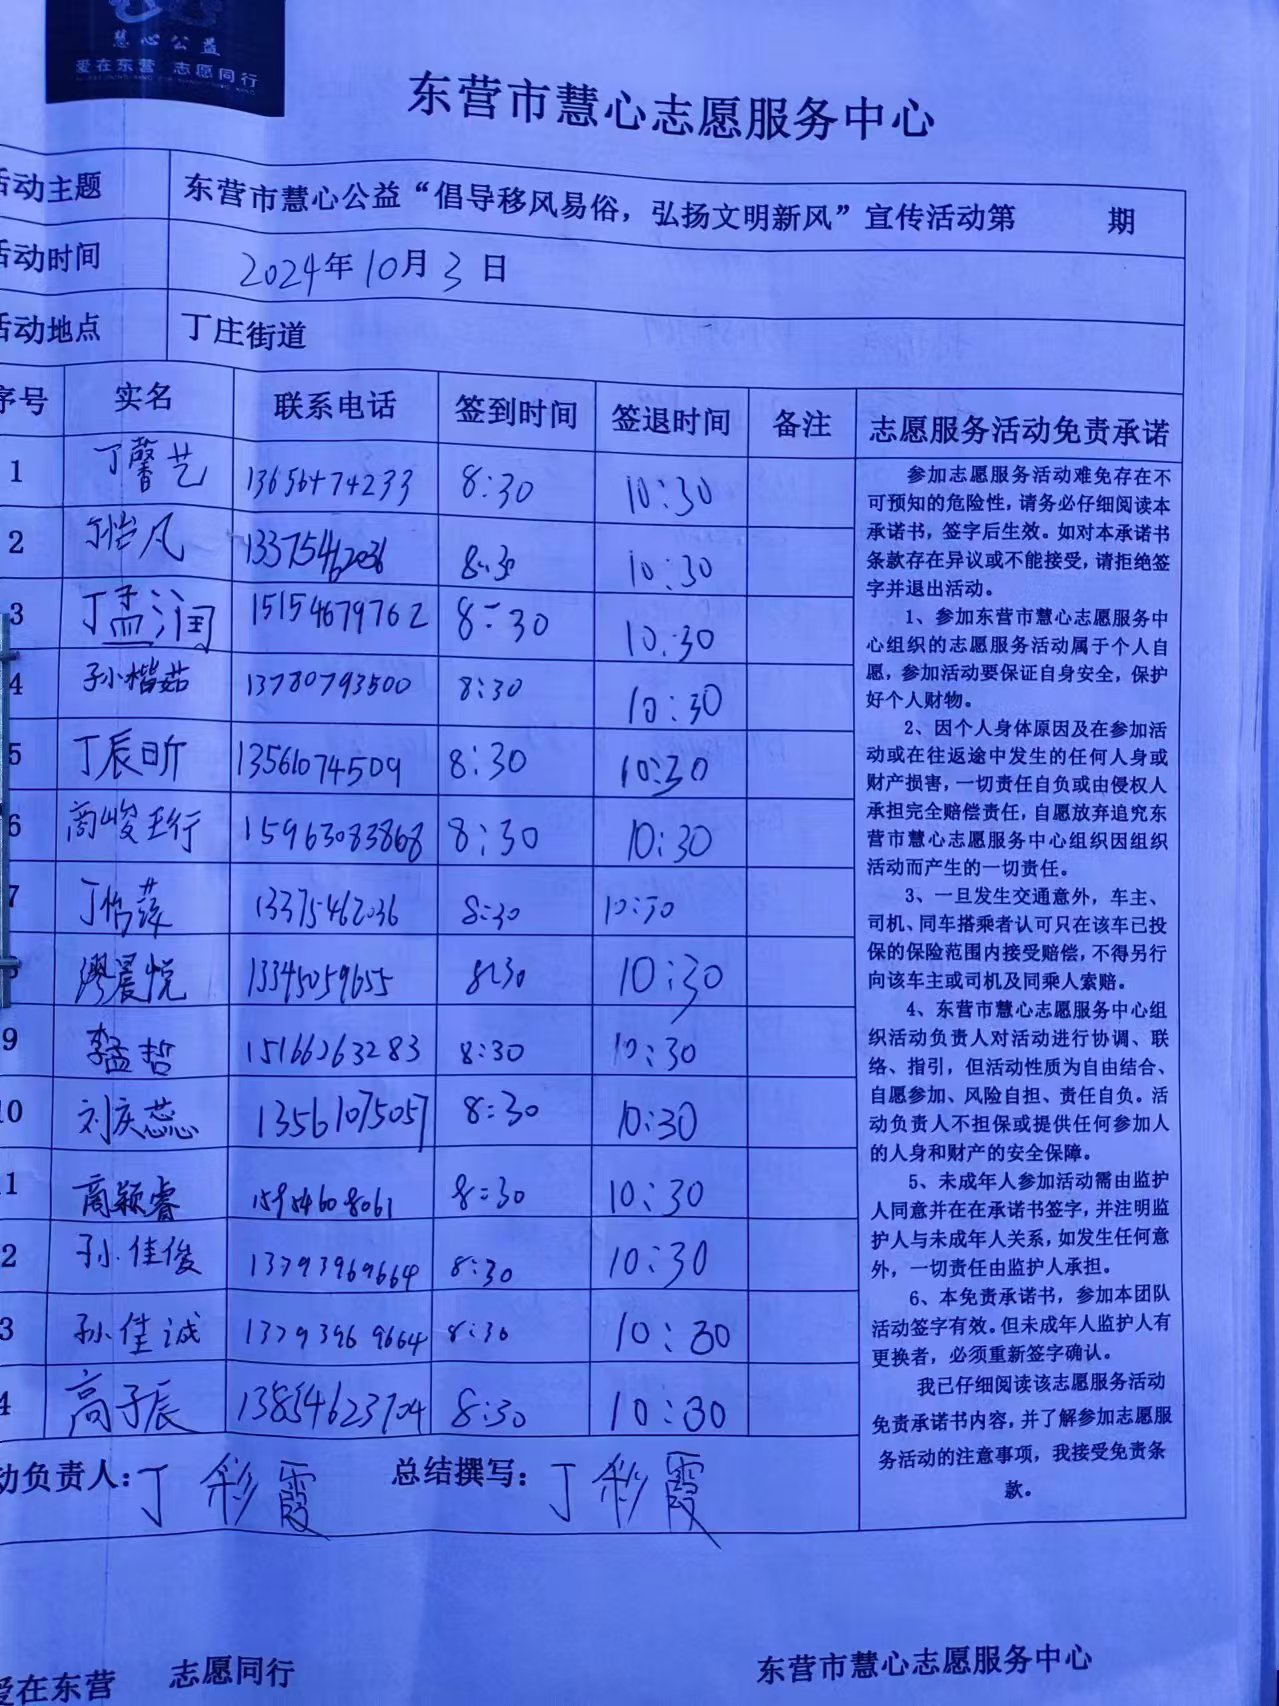 慧心公益
爱在东营 志愿同行
东营市慧心志愿服务中心
活动主题 东营市慧心公益“倡导移风易俗，弘扬文明新风”宣传活动第 期
活动时间 2024年10月3日
活动地点 丁庄街道
序号 实名 联系电话 签到时间 签退时间 备注 志愿服务活动免责承诺
1 丁馨艺 13656474233 8:30 10:30
2 丁怡凡 13375462036 8:30 10:30
3 丁孟润 15154679762 8:30 10:30
4 孙楷茹 13780793500 8:30 10:30
5 丁辰昕 13561074509 8:30 10:30
6 商峻珩 15963083868 8:30 10:30
7 丁怡萍 13375462036 8:30 10:30
缪晨悦 13345059655 8:30 10:30
9 李孟哲 15166263283 8:30 10:30
10 刘庆蕊 13561075057 8:30 10:30
11 商颖睿 15954608061 8:30 10:30
2 孙佳俊 13793969664 8:30 10:30
3 孙佳诚 13793969664 8:30 10:30
4 高子辰 13854623704 8:30 10:30
参加志愿服务活动难免存在不
可预知的危险性，请务必仔细阅读本
承诺书，签字后生效。如对本承诺书
条款存在异议或不能接受，请拒绝签
字并退出活动。
1、参加东营市慧心志愿服务中
心组织的志愿服务活动属于个人自
愿，参加活动要保证自身安全，保护
好个人财物。
2、因个人身体原因及在参加活
动或在往返途中发生的任何人身或
财产损害，一切责任自负或由侵权人
承担完全赔偿责任，自愿放弃追究东
营市慧心志愿服务中心组织因组织
活动而产生的一切责任。
3、一旦发生交通意外，车主、
司机、同车搭乘者认可只在该车已投
保的保险范围内接受赔偿，不得另行
向该车主或司机及同乘人索赔。
4、东营市慧心志愿服务中心组
织活动负责人对活动进行协调、联
络、指引，但活动性质为自由结合、
自愿参加、风险自担、责任自负。活
动负责人不担保或提供任何参加人
的人身和财产的安全保障。
5、未成年人参加活动需由监护
人同意并在在承诺书签字，并注明监
护人与未成年人关系，如发生任何意
外，一切责任由监护人承担。
6、本免责承诺书，参加本团队
活动签字有效。但未成年人监护人有
更换者，必须重新签字确认。
我已仔细阅读该志愿服务活动
免责承诺书内容，并了解参加志愿服
务活动的注意事项，我接受免责条
款。
动负责人：丁彩霞 总结撰写：丁彩霞
爱在东营 志愿同行 东营市慧心志愿服务中心